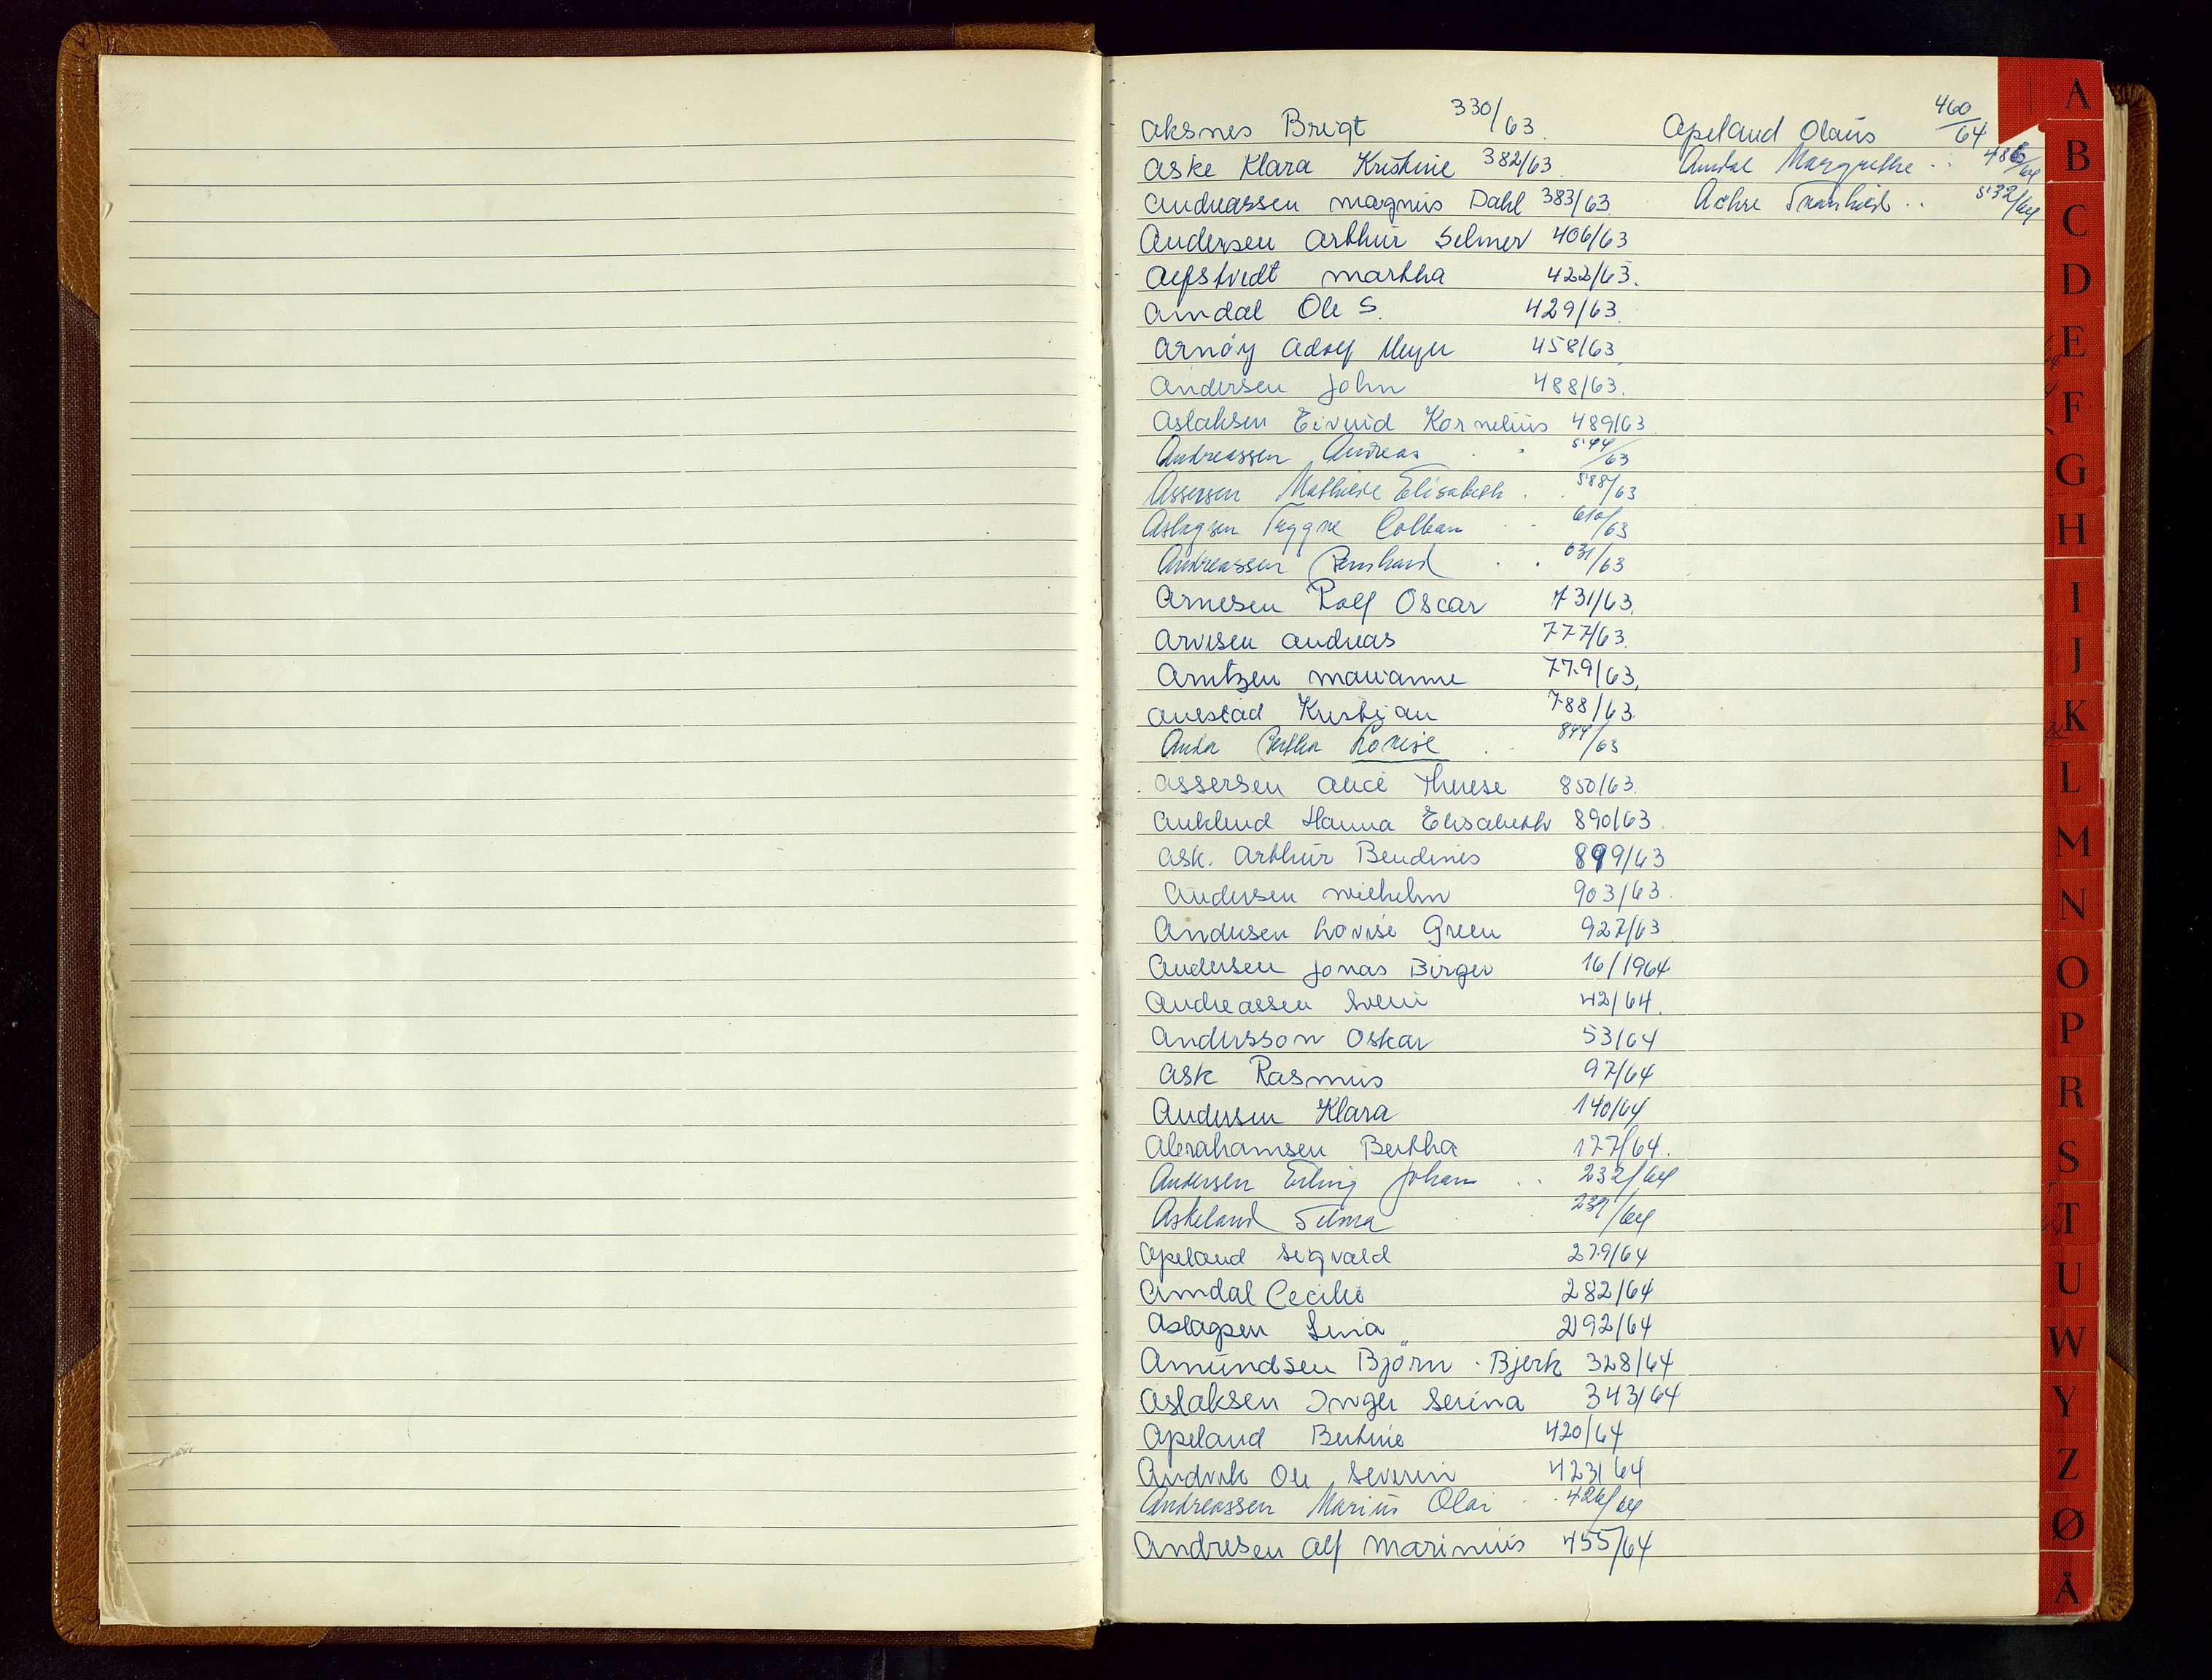 Aksnes Breigt 330/63.
Aske Klara Kristine 382/63.
Andreassen Magnus Dahl 383/63
Andersen Arthur Selmer 406/63
Alfstvedt Martha 422/63.
Amdal Ole S. 429/63.
Arnøy Adolf Meyer 458/63
Andersen John 488/63.
Aslaksen Eivind Kornelius 489/63
Andreassen Andreas . . 544/63
Assersen Mathilde Elisabeth . . 588/63
Aslagsen Tryggve Colban . . 610/63
Andreassen Bernhard . . 631/63
Arnesen Rolf Oscar 731/63.
Arvesen Andreas 777/63.
Arntzen Marianne 779/63.
Auestad Kristjan 788/63.
Anda Bertha Lovise . . 844/63
Assersen Alice Therese 850/63.
Auklend Hanna Elisabeth 890/63.
Ask. Arthur Bendinis 899/63
Andersen Wilhelm 903/63.
Andersen Lovise Green 927/63
Andersen Jonas Birger 16/1964
Andreassen Svein 42/64.
Andersson Oskar 53/64
Ask Rasmus 97/64
Andersen Klara 140/64
Abrahamsen Bertha 177/64.
Andersen Erling Johan . . 232/64
Askeland Selma . . 239/64
Apeland Sigvald 279/64
Amdal Cecilie 282/64
Aslagsen Lina 292/64
Amundsen Bjørn . Bjerk 328/64
Aslaksen Inger Serina 343/64
Apeland Bertine 420/64
Andvik Ole Severin 423/64
Andreassen Marius Olai . . 426/64
Andresen Alf Marinius 455/64
Apeland Olaus 460/64
Amdal Margrethe . . 486/64
Achre Ragnhild . . 532/64
A
B
C
D
E
F
G
H
I
J
K
L
M
N
O
P
R
S
T
U
W
Y
Z
Ø
Å